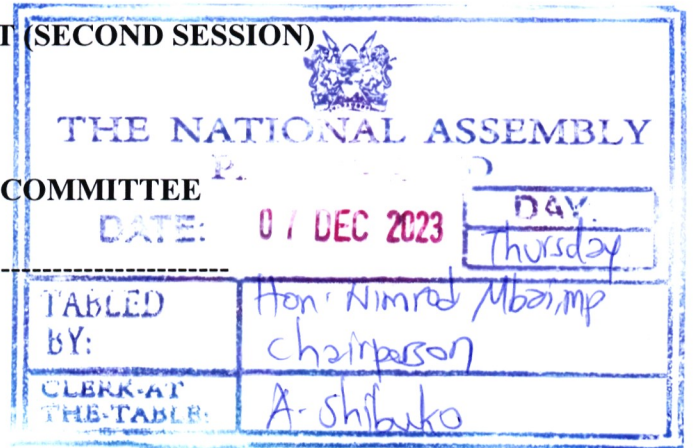 T (SECOND SESSION)
THE NATIONAL ASSEMBLY
COMMITTEE
DATE: 07 DEC 2023
DAY.
Thursday
TABLED BY:
Hon. Nimrod Mbai, mp
Chairperson
CLERK-AT THE-TABLE:
A. Shibuko